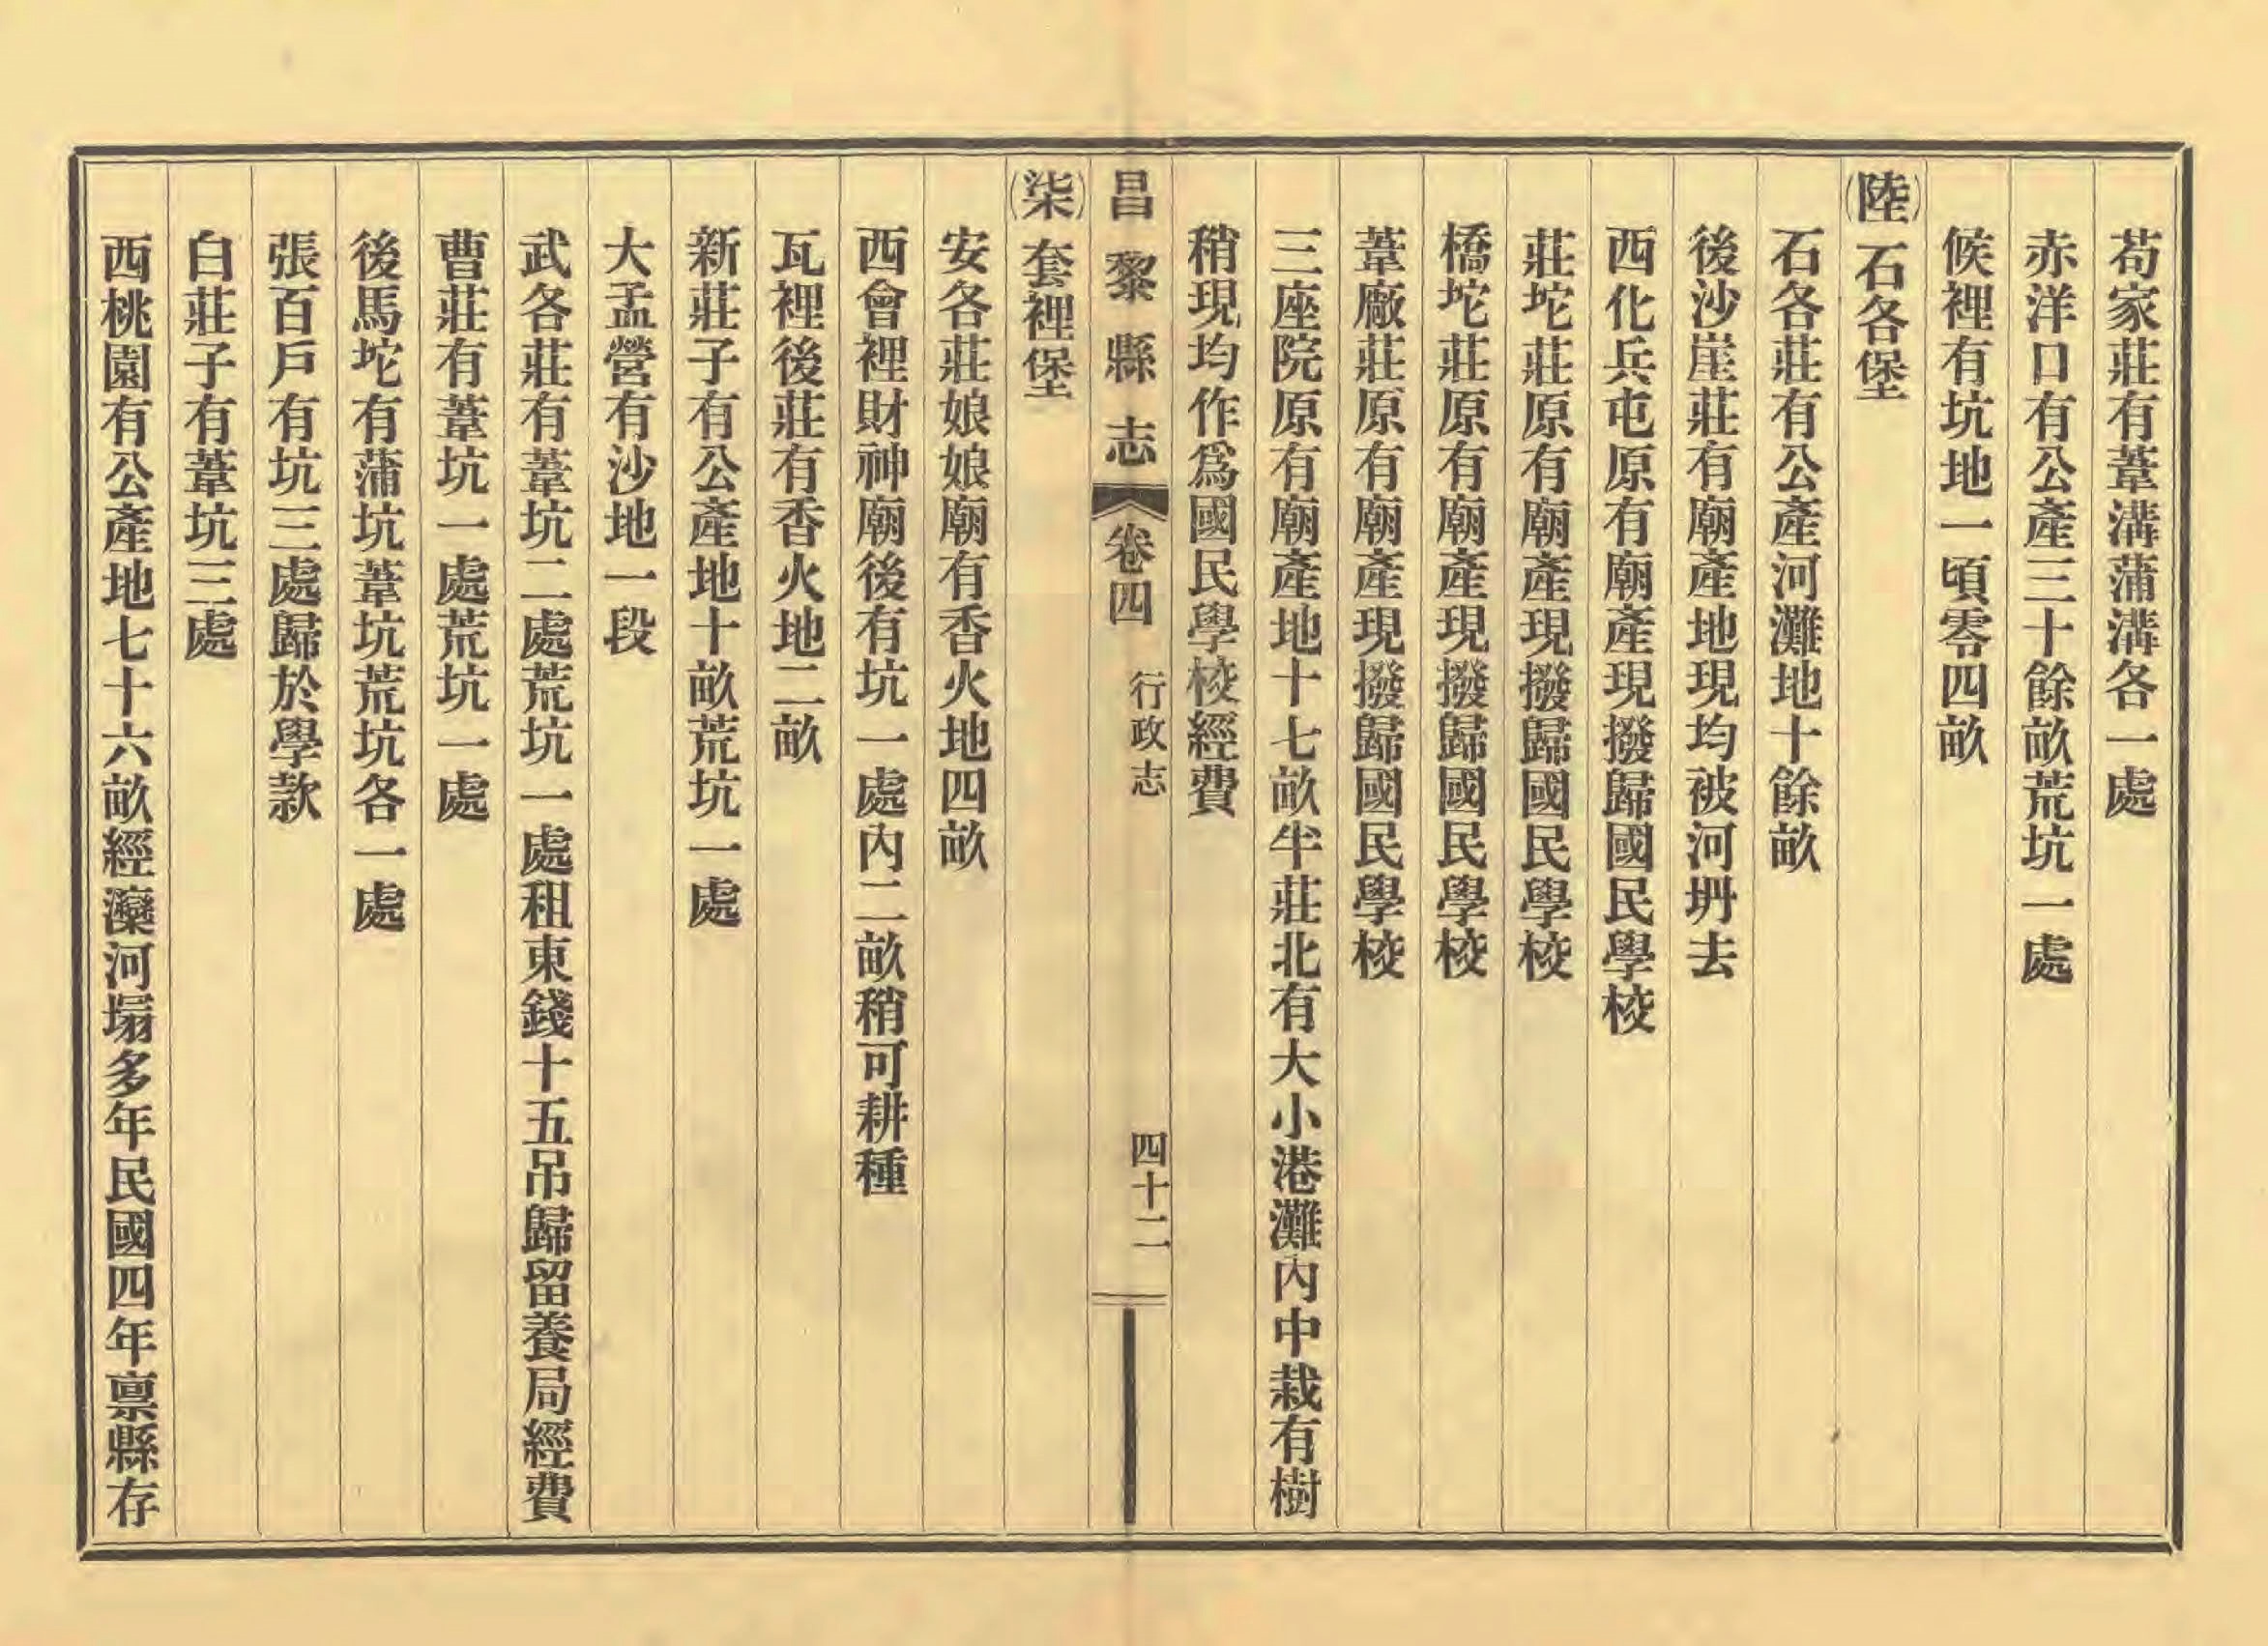 苟家莊有葦溝蒲溝各一處
赤洋口有公產三十餘畝荒坑一處
候裡有坑地一頃零四畝
(陸)石各堡
石各莊有公產河灘地十餘畝
後沙崖莊有廟產地現均被河坍去
西化兵屯原有廟產現撥歸國民學校
莊坨莊原有廟產現撥歸國民學校
橋坨莊原有廟產現撥歸國民學校
葦廠莊原有廟產現撥歸國民學校
三座院原有廟產地十七畝半莊北有大小港灘內中栽有樹
稍現均作爲國民學校經費
昌黎縣志 卷四 行政志 四十二
(柒)套裡堡
安各莊娘娘廟有香火地四畝
西會裡財神廟後有坑一處內二畝稍可耕種
瓦裡後莊有香火地二畝
新莊子有公產地十畝荒坑一處
大孟營有沙地一段
武各莊有葦坑二處荒坑一處租東錢十五吊歸留養局經費
曹莊有葦坑一處荒坑一處
後馬坨有蒲坑葦坑荒坑各一處
張百戶有坑三處歸於學款
白莊子有葦坑三處
西桃園有公產地七十六畝經灤河塌多年民國四年禀縣存